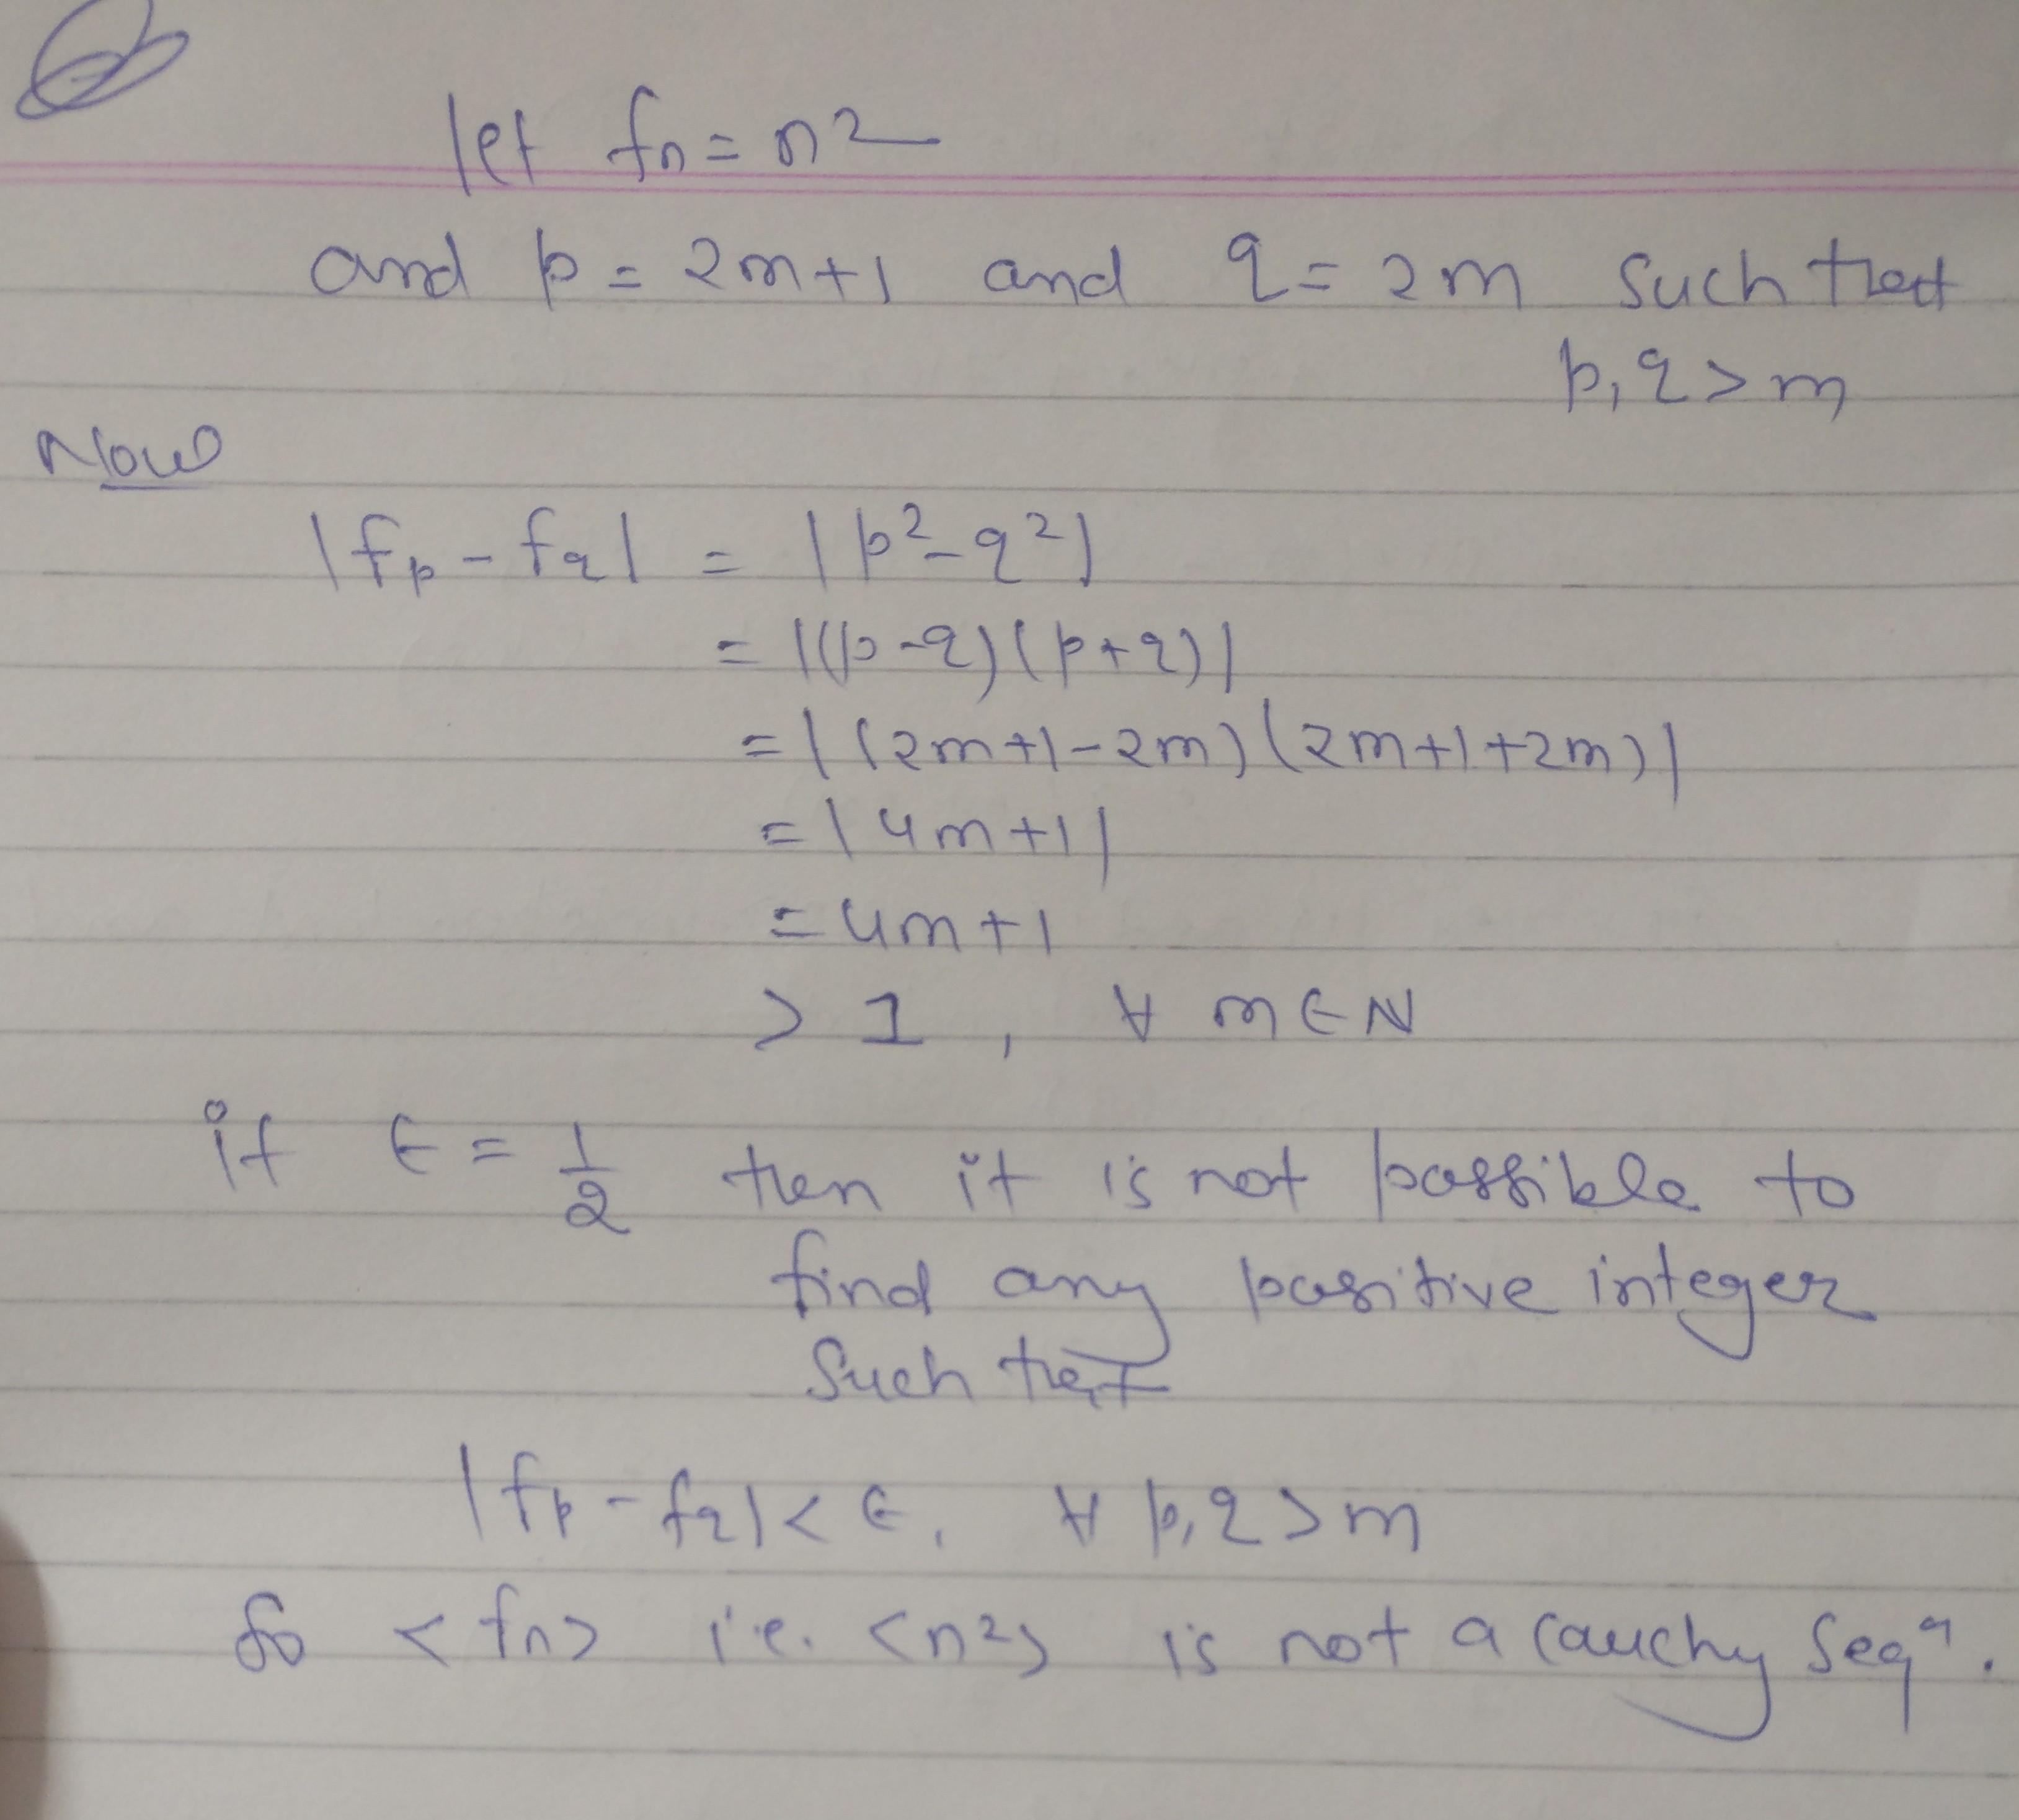 let fn = n²
and p = 2m+1 and q = 2m such that
p, q > m
Now
|fp - fq| = |p² - q²|
= |(p-q)(p+q)|
= |(2m+1-2m)(2m+1+2m)|
= |4m+1|
= 4m+1
> 1, ∀ m ∈ N
if ∈ = 1/2 then it is not possible to
find any positive integer
such that
|fp - fq| < ∈, ∀ p, q > m
So <fn> i.e. <n²> is not a Cauchy Seqⁿ.